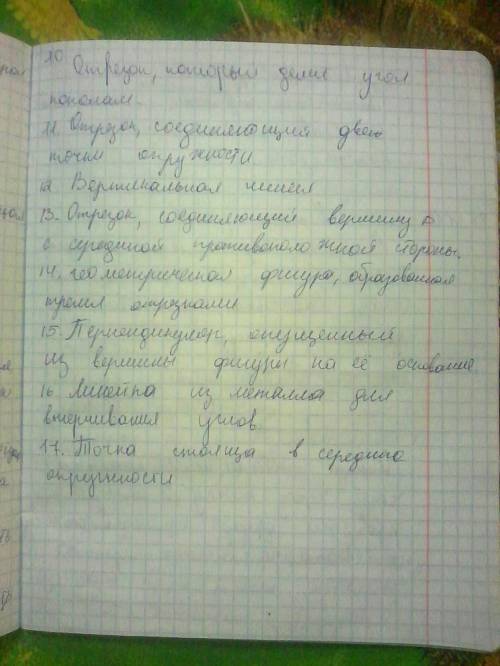 10
Отрезок, который делит угол
пополам.
11. Отрезок, соединяющий двою
точки окружности
12 Вертикальная линия
13. Отрезок, соединяющий вершину
с серединой противоположной стороны.
14. геометрическая фигура, образованная
тремя отрезками
15. Перпендикуляр, опущенный
из вершины фигуры на её основание
16 Линейка из металла для
вычерчивания углов
17. Точка стоящая в середине
окружности